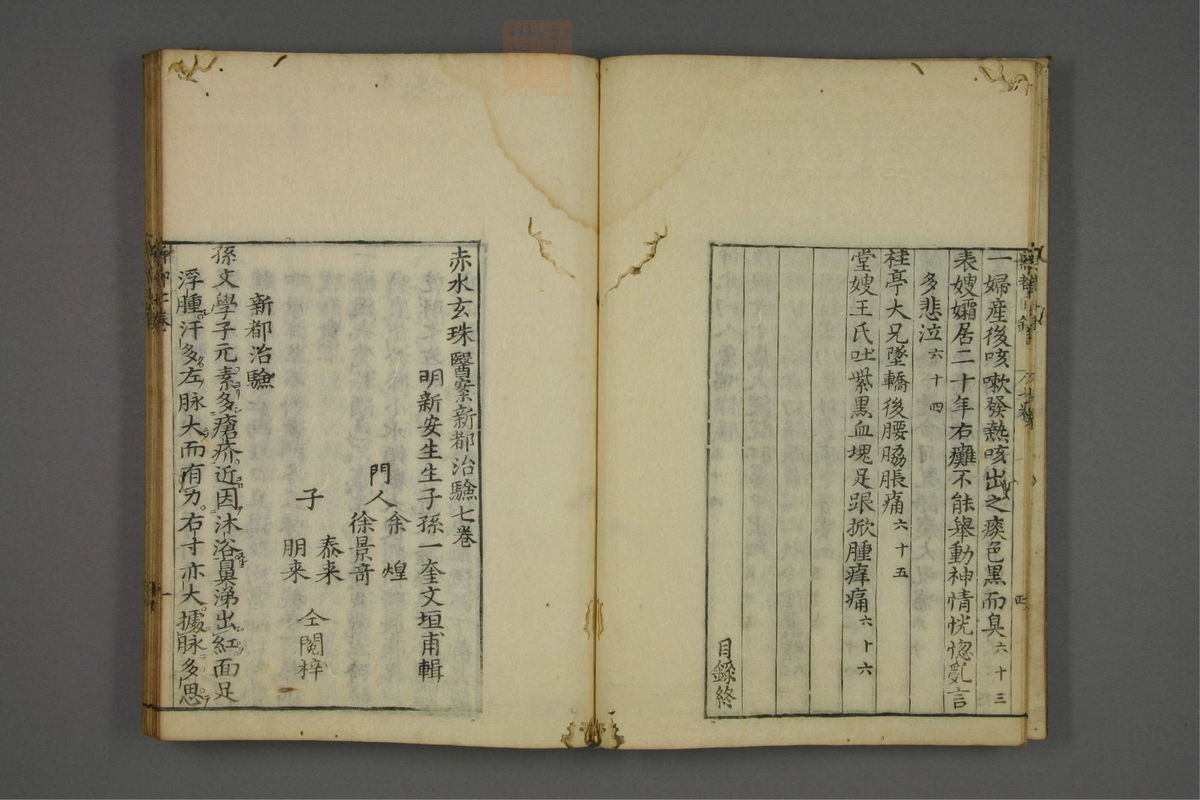 一婦産後咳嗽發熱咳出之痰色黒而臭六十三
表嫂孀居二十年右癱不能舉動神情恍惚亂言
多悲泣六十四
桂亭大兄墜轎後腰脇脹痛六十五
堂嫂王氏吐紫黒血塊足跟掀腫痒痛六十六
目錄終
赤水玄珠醫案新都治驗七卷
明新安生生子孫一奎文垣甫輯
門人余煌
徐景奇
子泰来
朋来
仝閱梓
新都治驗
孫文學子元素多瘡疥近因沐浴鼻涕出紅面足
浮腫汗多左脉大而有力右寸亦大據脉多思